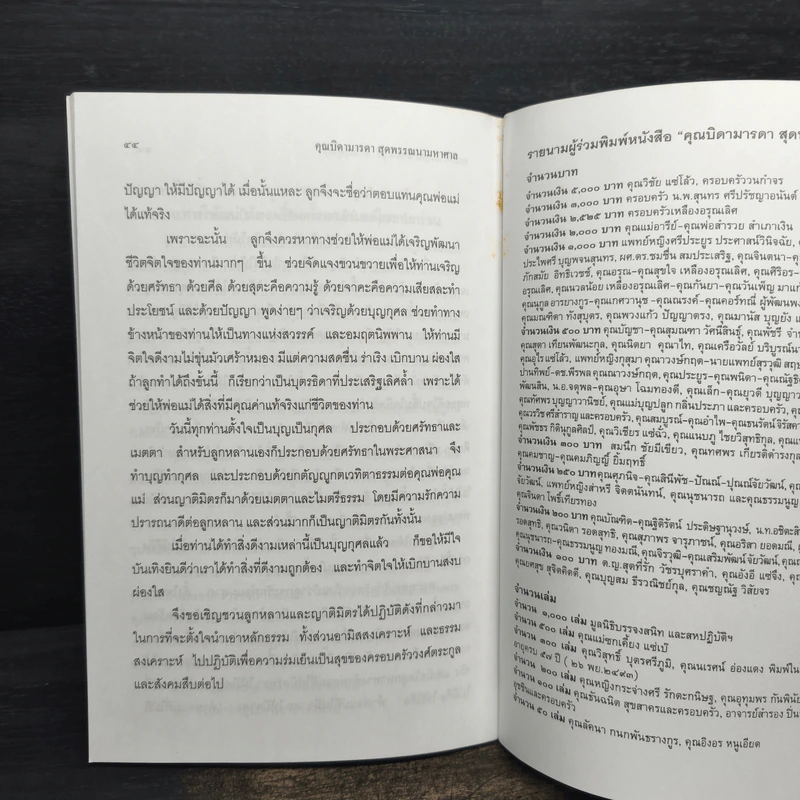 ๔๔
คุณบิดามารดา สุดพรรณนามหาศาล
ปัญญา ให้มีปัญญาได้ เมื่อนั้นแหละ ลูกจึงจะชื่อว่าตอบแทนคุณพ่อแม่
ได้แท้จริง
เพราะฉะนั้น ลูกจึงควรหาทางช่วยให้พ่อแม่ได้เจริญพัฒนา
ชีวิตจิตใจของท่านมากๆ ขึ้น ช่วยจัดแจงขวนขวายเพื่อให้ท่านเจริญ
ด้วยศรัทธา ด้วยศีล ด้วยสุตะคือความรู้ ด้วยจาคะคือความเสียสละทำ
ประโยชน์ และด้วยปัญญา พูดง่ายๆ ว่าเจริญด้วยบุญกุศล ช่วยทำทาง
ข้างหน้าของท่านให้เป็นทางแห่งสวรรค์ และอมฤตนิพพาน ให้ท่านมี
จิตใจดีงามไม่ขุ่นมัวเศร้าหมอง มีแต่ความสดชื่น ร่าเริง เบิกบาน ผ่องใส
ถ้าลูกทำได้ถึงขั้นนี้ ก็เรียกว่าเป็นบุตรธิดาที่ประเสริฐเลิศล้ำ เพราะได้
ช่วยให้พ่อแม่ได้สิ่งที่มีคุณค่าแท้จริงแก่ชีวิตของท่าน
วันนี้ทุกท่านตั้งใจเป็นบุญเป็นกุศล ประกอบด้วยศรัทธาและ
เมตตา สำหรับลูกหลานเองก็ประกอบด้วยศรัทธาในพระศาสนา จึง
ทำบุญทำกุศล และประกอบด้วยกตัญญูกตเวทิตาธรรมต่อคุณพ่อคุณ
แม่ ส่วนญาติมิตรก็มาด้วยเมตตาและไมตรีธรรม โดยมีความรักความ
ปรารถนาดีต่อลูกหลาน และส่วนมากก็เป็นญาติมิตรกันทั้งนั้น
เมื่อท่านได้ทำสิ่งดีงามเหล่านี้เป็นบุญกุศลแล้ว ก็ขอให้มีใจ
บันเทิงยินดีว่าเราได้ทำสิ่งที่ดีงามถูกต้อง และทำจิตใจให้เบิกบานสงบ
ผ่องใส
จึงขอเชิญชวนลูกหลานและญาติมิตรได้ปฏิบัติดังที่กล่าวมา
ในการที่จะตั้งใจนำเอาหลักธรรม ทั้งส่วนอามิสสงเคราะห์ และธรรม
สงเคราะห์ ไปปฏิบัติเพื่อความร่มเย็นเป็นสุขของครอบครัววงศ์ตระกูล
และสังคมสืบต่อไป
รายนามผู้ร่วมพิมพ์หนังสือ "คุณบิดามารดา
จำนวนบาท
จำนวนเงิน ๕,๐๐๐ บาท คุณวิชัย แซ่โล้ว, ครอบครัววนกำจร
จำนวนเงิน ๓,๐๐๐ บาท ครอบครัว น.พ.สุนทร ศรีปรัชญาอนันต์
จำนวนเงิน ๒,๕๒๕ บาท ครอบครัวเหลืองอรุณเลิศ
จำนวนเงิน ๒,๐๐๐ บาท คุณแม่อารีย์-คุณพ่อสำรวย สำเภาเงิน
จำนวนเงิน ๑,๐๐๐ บาท แพทย์หญิงศรีประยูร ประศาสน์วินิจฉัย,
ประไพศรี บุญพจนสุนทร, ผศ.ดร.ชมชื่น สมประเสริฐ, คุณจินตนา-
ภักสมัย อิทธิเวชช์, คุณอรุณ-คุณสุขใจ เหลืองอรุณเลิศ, คุณศิริอร-
คุณนวลน้อย เหลืองอรุณเลิศ-คุณกันยา-คุณวันเพ็ญ
คุณนุกูล อารยางกูร-คุณเกศวานุช -คุณณรงค์-คุณคอร์ทณี่ ผู้พัฒนพงศ์
คุณมณฑิตา ทังสุบุตร, คุณพวงแก้ว ปัญญาตรง, คุณมานัส บุญยัง
จำนวนเงิน ๕๐๐ บาท คุณบัญชา-คุณสุมณฑา วัศนีสินธุ์, คุณพัชรี
คุณสุดา เทียนพัฒนะกุล, คุณนิตยา คุณาไท, คุณเครือวัลย์ บริบูรณ์
คุณอุไร แซ่โล้ว, แพทย์หญิงกุสุมา คุณาวงษ์กฤต-นายแพทย์สุรวุฒิ
ปานทิพย์-ดช.พีรพล คุณณาวงษ์กฤต, คุณประยูร-คุณพนิดา-คุณณัฐธิ
พัฒนสิน, น.อ.จตุพล-คุณอุษา โฉมทองดี, คุณเล็ก-คุณยุวดี
คุณทัศพร บุญญาวานิชย์, คุณแม่บุญปลูก กลิ่นประภา และครอบครัว,
คุณวรวิช ศรีสำราญและครอบครัว, คุณสมบูรณ์-คุณอำไพ-คุณธนรัตน์
คุณพัชธร กิตินุกูลศิลป์, คุณวิเชียร แซ่ฉั่ว, คุณแนบภู ไชยวิสุทธิกุล,
จำนวนเงิน ๓๐๐ บาท สมนึก ชัยมีเขียว, คุณทศพร เกียรติดำรงกุล
คุณคมชาญ-คุณคมภิญญ์ ยิ้มฤทธิ์
จำนวนเงิน ๒๕๐ บาท คุณศุภนิจ-คุณสินีพัช-ปัณณ์-ปุณณ์จัยวัฒน์,
จัยวัฒน์, แพทย์หญิงสำหรี จิตตนันทน์, คุณนุชนารถ และคุณธรรมนูญ
คุณจินดา โพธิ์เที่ยรทอง
จำนวนเงิน ๒๐๐ บาท คุณบัณฑิต-คุณฐิติรัตน์ ประดิษฐานุวงษ์,
รอดสุทธิ, คุณวนิดา รอดสุทธิ, คุณสุภาพร จารุภาชน์, คุณอริสา ยอดมณี,
คุณนุชนารถ-คุณธรรมนูญ ทองมณี, คุณจิรวุฒิ-คุณเสริมพัฒน์จัยวัฒน์,
จำนวนเงิน ๑๐๐ บาท ด.ญ.สุดที่รัก วัชรบุศราคำ, คุณอังอี แซ่จึง,
คุณยศสุข สุจิตคิดดี, คุณบุญสม ธีรวณิชย์กุล, คุณชญณัฐ วิสัยจร
จำนวนเล่ม
จำนวน ๑,๐๐๐ เล่ม มูลนิธิบรรจงสนิท และสหปฏิบัติฯ
จำนวน ๕๐๐ เล่ม คุณแม่ซกเคี้ยง แซ่เบ๊
จำนวน ๓๐๐ เล่ม คุณวิสุทธิ์ บุตรศรีภูมิ, คุณนเรศน์ อ่องแตง พิมพ์ใน
อายุครบ ๕๗ ปี ( ๒๖ พย.๒๔๙๓)
จำนวน ๒๐๐ เล่ม คุณหญิงกระจ่างศรี รักตะกนิษฐ, คุณอุทุมพร
จำนวน ๑๐๐ เล่ม คุณธันฉนิต สุขสาครและครอบครัว, อาจารย์สำรอง
สุรชินและครอบครัว
จำนวน ๕๐ เล่ม คุณลัคนา กนกพันธรางกูร, คุณอิงอร หนูเอียด